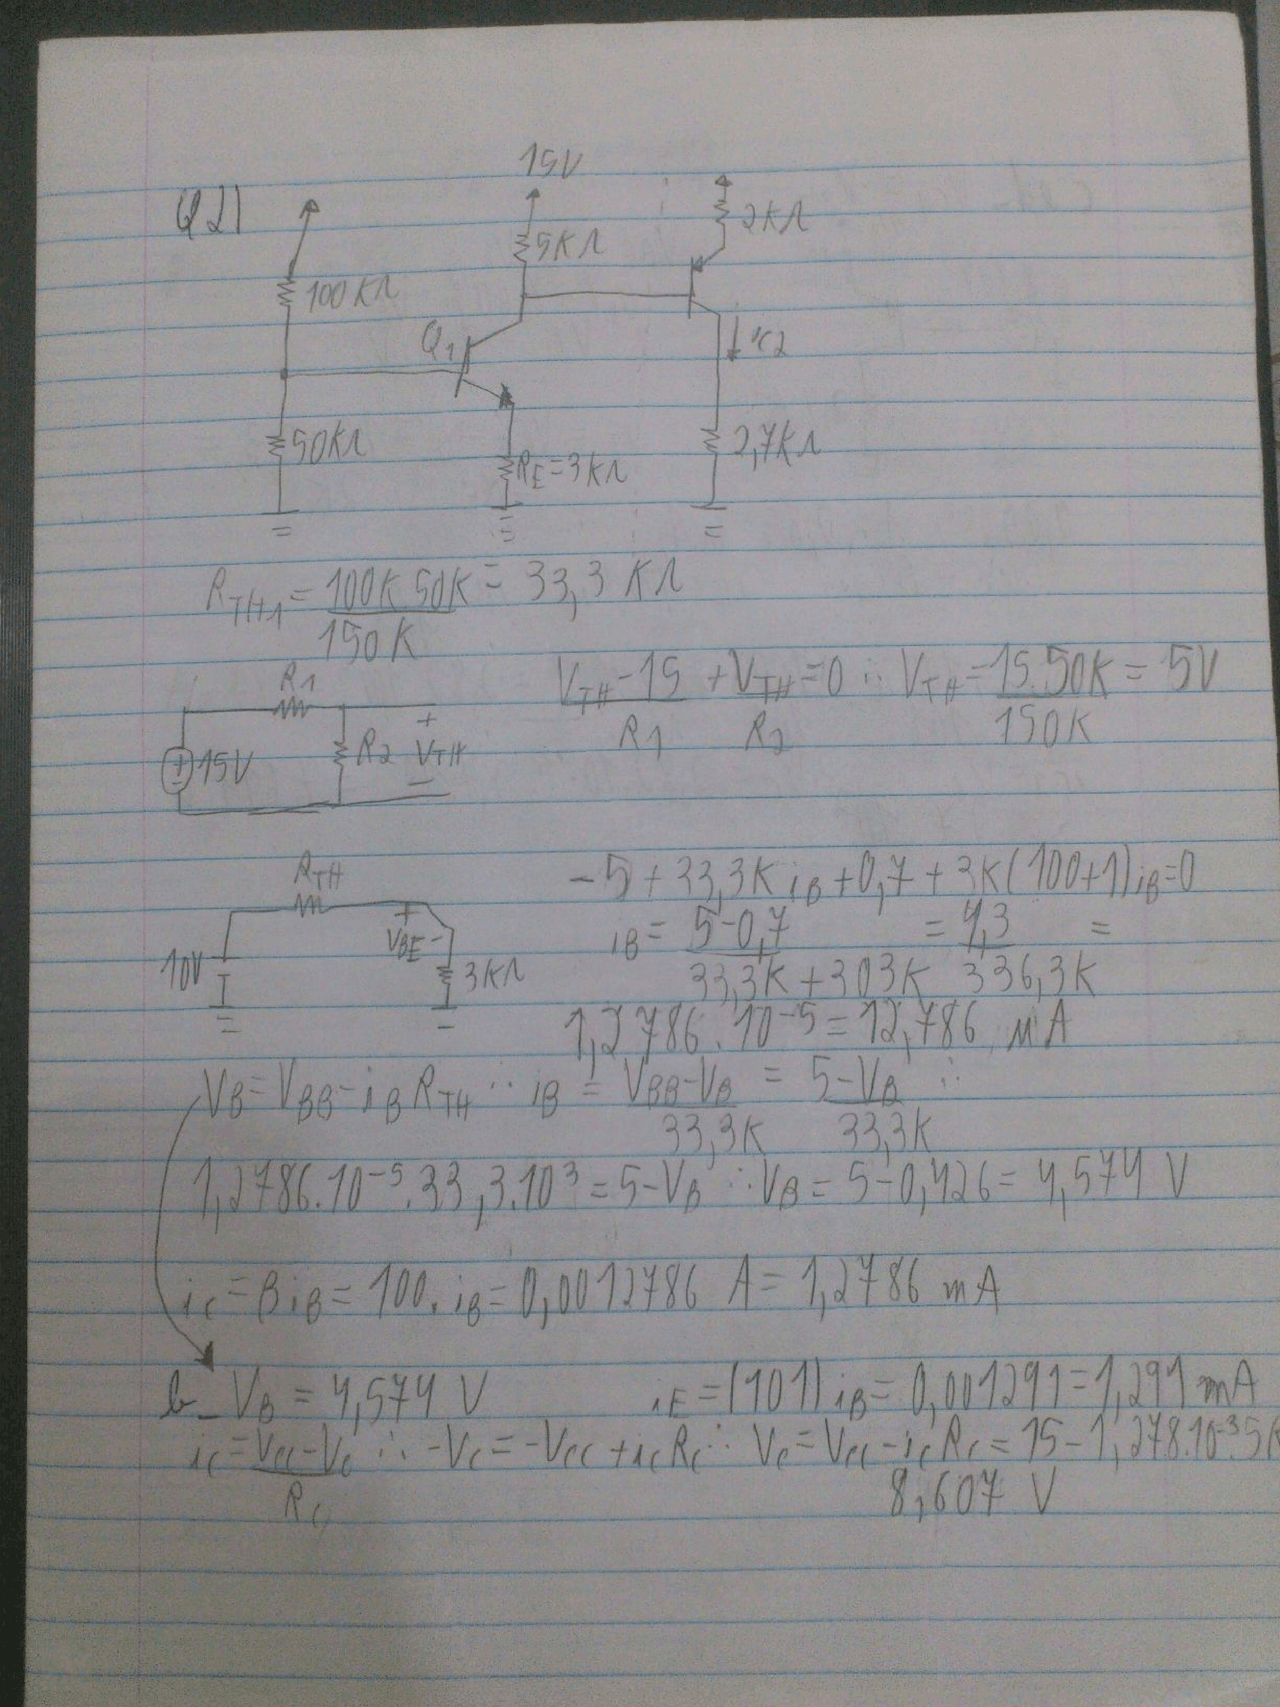 Q2)
15V
5KΩ
2KΩ
100KΩ
Q1
ic2
50KΩ
RE=3KΩ
2,7KΩ
RTH1 = 100K.50K = 33,3 KΩ
150K
R1
15V
R2
+
VTH
-
VTH-15 + VTH = 0 ∴ VTH = 15.50K = 5V
R1 R2 150K
RTH
10V
+
VBE -
3KΩ
-5 + 33,3K iB + 0,7 + 3K(100+1)iB=0
iB = 5-0,7 = 4,3 =
33,3K + 303K 336,3K
1,2786.10⁻⁵ = 12,786 μA
VB = VBB - iB RTH ∴ iB = VBB-VB = 5-VB ∴
33,3K 33,3K
1,2786.10⁻⁵.33,3.10³ = 5-VB ∴ VB = 5-0,426 = 4,574 V
ic = βiB = 100.iB = 0,0012786 A = 1,2786 mA
b- VB = 4,574 V iE = (101) iB = 0,001291 = 1,291 mA
ic = Vcc-Vc ∴ -Vc = -Vcc + icRc ∴ Vc = Vcc - icRc = 15-1,278.10⁻³.5K
Rc
8,607 V